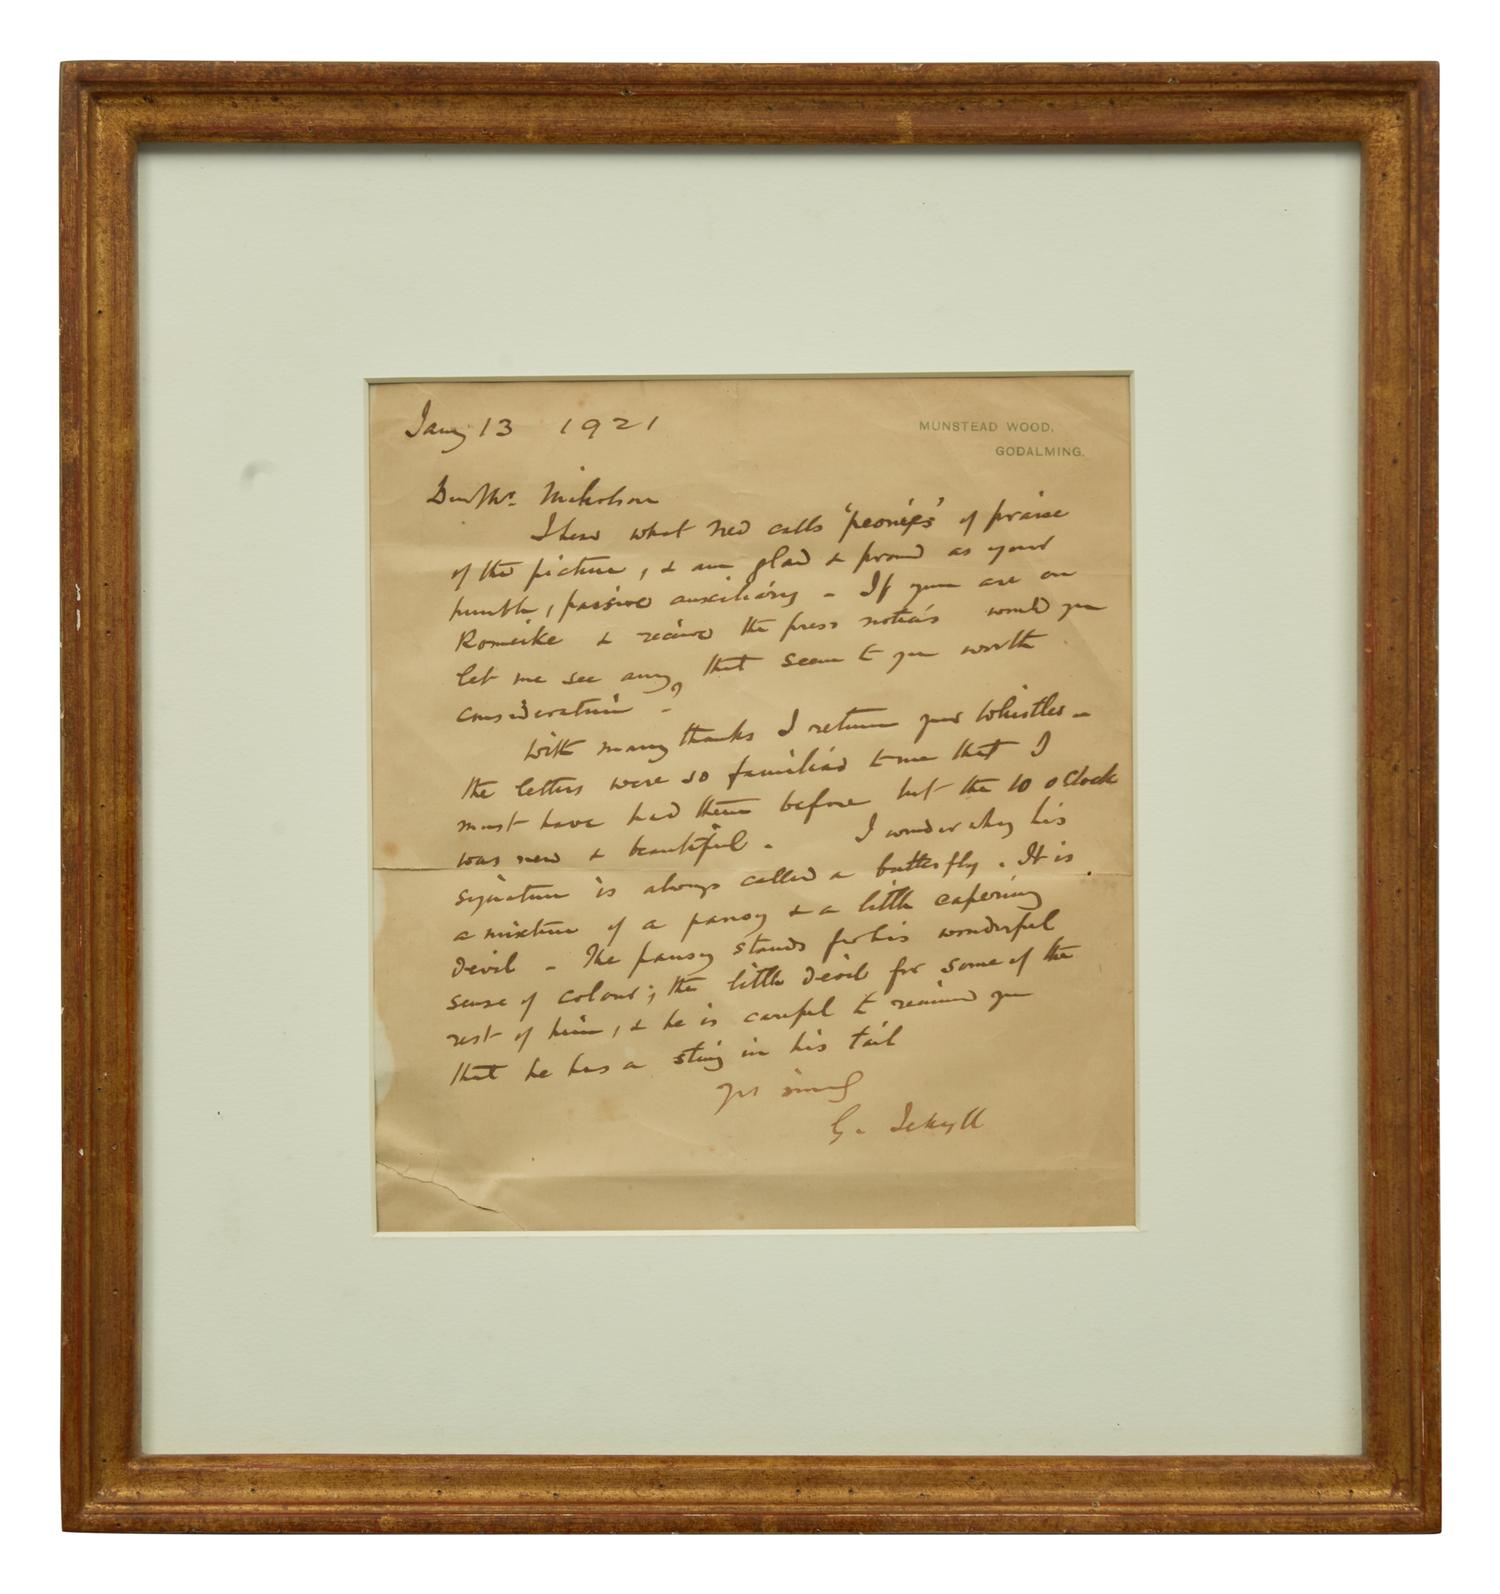 Jany 13 1921
MUNSTEAD WOOD,
GODALMING.
Dear Mr. Nicholson
I hear what Ned calls 'peonies' of praise
of the picture, & am glad & proud as your
humble, passive auxiliary - If you are on
Romeike & receive the press notices would you
let me see any, that seem to you worth
consideration -?
With many thanks I return your Whistler -
the letters were so familiar to me that I
must have had them before but the 10 o'clock
was new & beautiful. I wonder why his
signature is always called a butterfly. It is
a mixture of a pansy & a little capering
devil - The pansy stands for his wonderful
sense of colour; the little devil for some of the
rest of him, & he is careful to remind you
that he has a sting in his tail
Yrs sincely
G. Jekyll